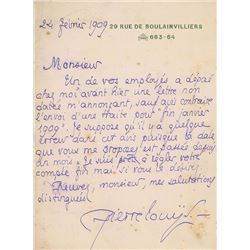 29 RUE DE BOULAINVILLIERS
683-64
24 février 1909
Monsieur
Un de vos employés a déposé
chez moi avant hier une lettre non
datée m'annonçant, sauf avis contraire
l'envoi d'une traite pour "fin janvier
1909". Je suppose qu'il y a quelque
erreur dans cet avis puisque la date
que vous me proposez est passée depuis
un mois. Je suis prêt à régler votre
compte fin mai, si vous le désirez.
Recevez, monsieur, mes salutations
distinguées
Pierre Louÿs